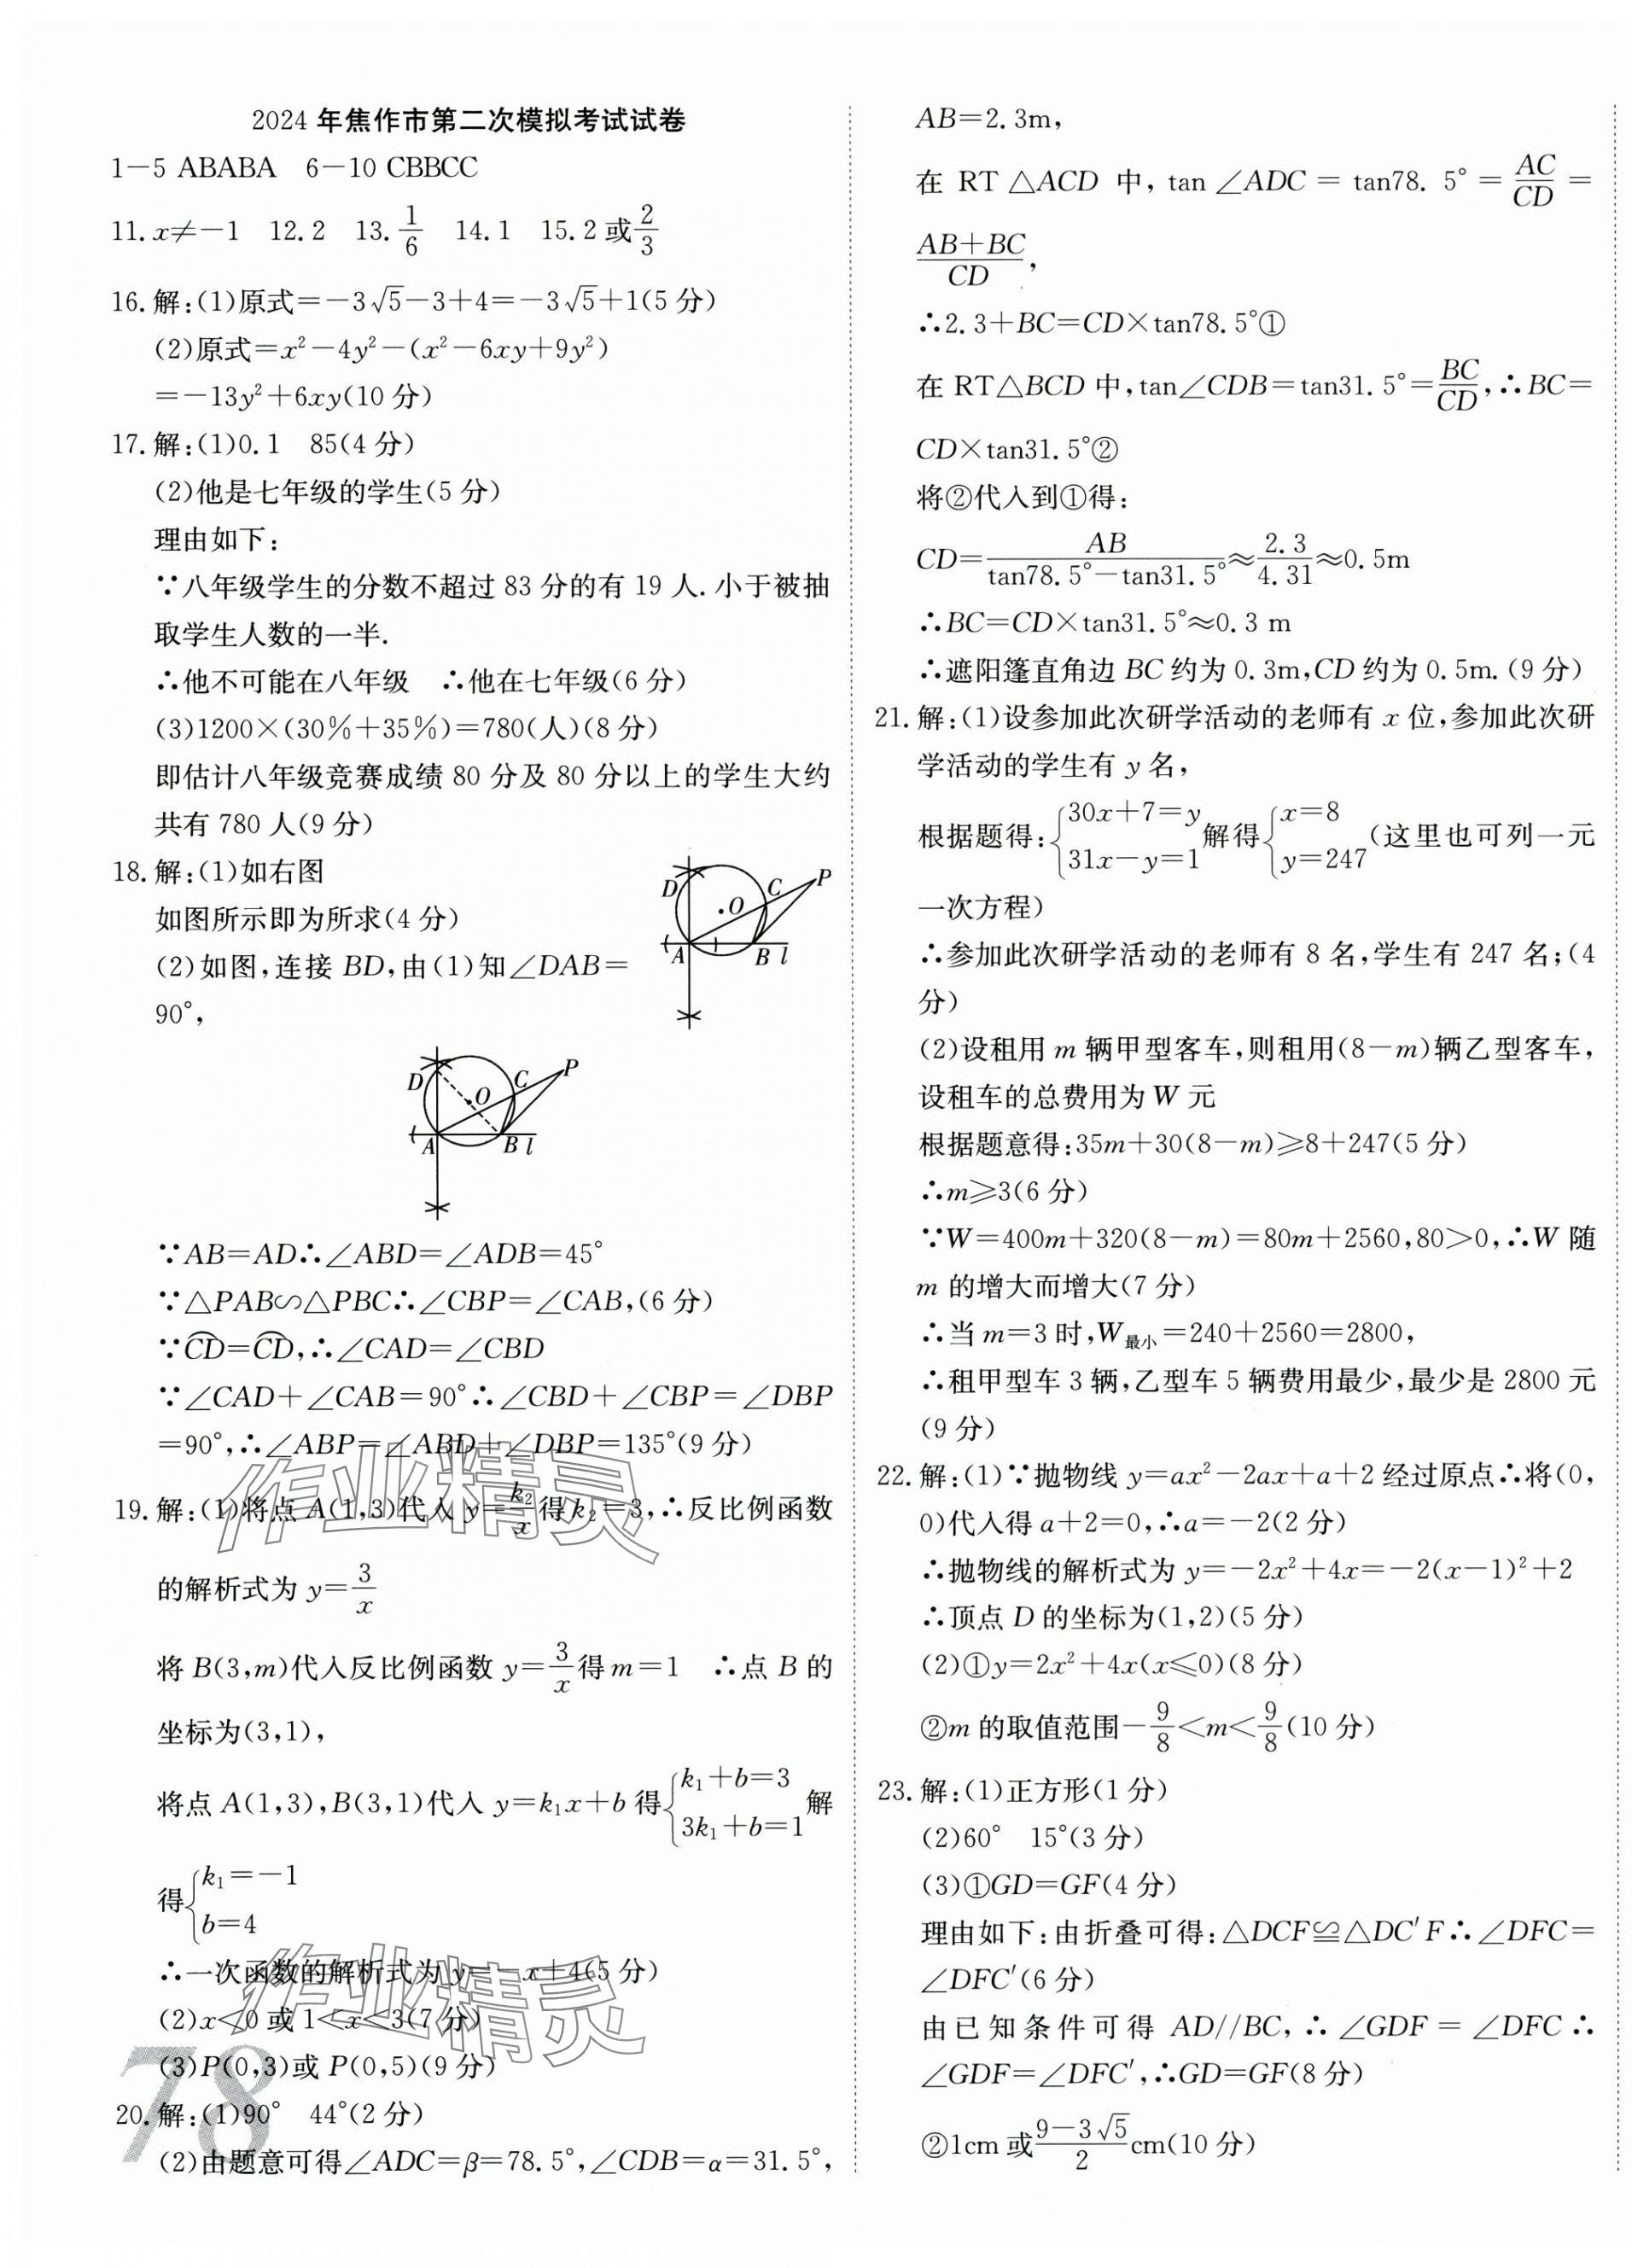 2024年焦作市第二次模拟考试试卷
1－5 ABABA　6－10 CBBCC
11. x≠－1　12. 2　13. 1/6　14. 1　15. 2或2/3
16. 解:(1)原式＝－3√5－3＋4＝－3√5＋1(5分)
(2)原式＝x²－4y²－(x²－6xy＋9y²)
＝－13y²＋6xy(10分)
17. 解:(1)0.1　85(4分)
(2)他是七年级的学生(5分)
理由如下:
∵八年级学生的分数不超过83分的有19人. 小于被抽
取学生人数的一半.
∴他不可能在八年级　∴他在七年级(6分)
(3)1200×(30%＋35%)＝780(人)(8分)
即估计八年级竞赛成绩80分及80分以上的学生大约
共有780人(9分)
18. 解:(1)如右图
如图所示即为所求(4分)
(2)如图,连接BD,由(1)知∠DAB＝
90°,
D C P O A B l
D C P O A B l
∵AB＝AD∴∠ABD＝∠ADB＝45°
∵△PAB∽△PBC∴∠CBP＝∠CAB,(6分)
∵⌒CD＝⌒CD,∴∠CAD＝∠CBD
∵∠CAD＋∠CAB＝90°∴∠CBD＋∠CBP＝∠DBP
＝90°,∴∠ABP＝∠ABD＋∠DBP＝135°(9分)
19. 解:(1)将点A(1,3)代入y＝k₂/x得k₂＝3,∴反比例函数
的解析式为y＝3/x
将B(3,m)代入反比例函数y＝3/x得m＝1　∴点B的
坐标为(3,1),
将点A(1,3),B(3,1)代入y＝k₁x＋b得{k₁＋b＝3 3k₁＋b＝1解
得{k₁＝－1 b＝4
∴一次函数的解析式为y＝－x＋4(5分)
(2)x<0或1<x<3(7分)
(3)P(0,3)或P(0,5)(9分)
20. 解:(1)90°　44°(2分)
(2)由题意可得∠ADC＝β＝78.5°,∠CDB＝α＝31.5°,
78
作业精灵
作业精灵
AB＝2.3m,
在RT△ACD中,tan∠ADC＝tan78.5°＝AC/CD＝
(AB＋BC)/CD,
∴2.3＋BC＝CD×tan78.5°①
在RT△BCD中,tan∠CDB＝tan31.5°＝BC/CD,∴BC＝
CD×tan31.5°②
将②代入到①得:
CD＝AB/(tan78.5°－tan31.5°)≈2.3/4.31≈0.5m
∴BC＝CD×tan31.5°≈0.3 m
∴遮阳篷直角边BC约为0.3m,CD约为0.5m. (9分)
21. 解:(1)设参加此次研学活动的老师有x位,参加此次研
学活动的学生有y名,
根据题得:{30x＋7＝y 31x－y＝1解得{x＝8 y＝247(这里也可列一元
一次方程)
∴参加此次研学活动的老师有8名,学生有247名;(4
分)
(2)设租用m辆甲型客车,则租用(8－m)辆乙型客车,
设租车的总费用为W元
根据题意得:35m＋30(8－m)≥8＋247(5分)
∴m≥3(6分)
∵W＝400m＋320(8－m)＝80m＋2560,80>0,∴W随
m的增大而增大(7分)
∴当m＝3时,W最小＝240＋2560＝2800,
∴租甲型车3辆,乙型车5辆费用最少,最少是2800元
(9分)
22. 解:(1)∵抛物线y＝ax²－2ax＋a＋2经过原点∴将(0,
0)代入得a＋2＝0,∴a＝－2(2分)
∴抛物线的解析式为y＝－2x²＋4x＝－2(x－1)²＋2
∴顶点D的坐标为(1,2)(5分)
(2)①y＝2x²＋4x(x≤0)(8分)
②m的取值范围－9/8<m<9/8(10分)
23. 解:(1)正方形(1分)
(2)60°　15°(3分)
(3)①GD＝GF(4分)
理由如下:由折叠可得:△DCF≌△DC′F∴∠DFC＝
∠DFC′(6分)
由已知条件可得AD//BC,∴∠GDF＝∠DFC∴
∠GDF＝∠DFC′,∴GD＝GF(8分)
②1cm或(9－3√5)/2cm(10分)